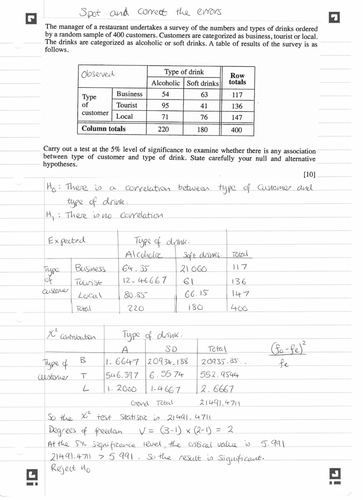 Spot and correct the errors
The manager of a restaurant undertakes a survey of the numbers and types of drinks ordered
by a random sample of 400 customers. Customers are categorized as business, tourist or local.
The drinks are categorized as alcoholic or soft drinks. A table of results of the survey is as
follows.
Observed Type of drink Row totals
Alcoholic Soft drinks
Type of customer Business 54 63 117
Tourist 95 41 136
Local 71 76 147
Column totals 220 180 400
Carry out a test at the 5% level of significance to examine whether there is any association
between type of customer and type of drink. State carefully your null and alternative
hypotheses.
[10]
H₀: There is a correlation between type of customer and
type of drink.
H₁: There is no correlation
Expected Type of drink.
Alcoholic Soft drinks Total
Type of customer Business 64.35 21060 117
Tourist 12.46667 61 136
Local 80.85 66.15 147
Total 220 180 400
X² contribution Type of drink.
A SD Total (fo-fe)²
fe
Type of customer B 1.6647 20934.188 20935.85
T 546.397 6.5574 552.9544
L 1.2000 1.4667 2.6667
Grand Total 21491.4711
So the X² test statistic is 21491.4711
Degrees of freedom V = (3-1) × (2-1) = 2
At the 5% significance level, the critical value is 5.991
21491.4711 > 5.991. So the result is significant.
Reject H₀